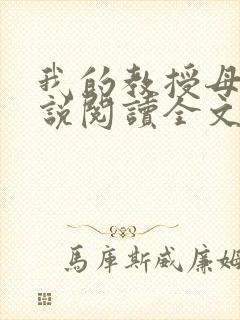 我的教授母
說閱讀全文
馬庫斯威廉姆